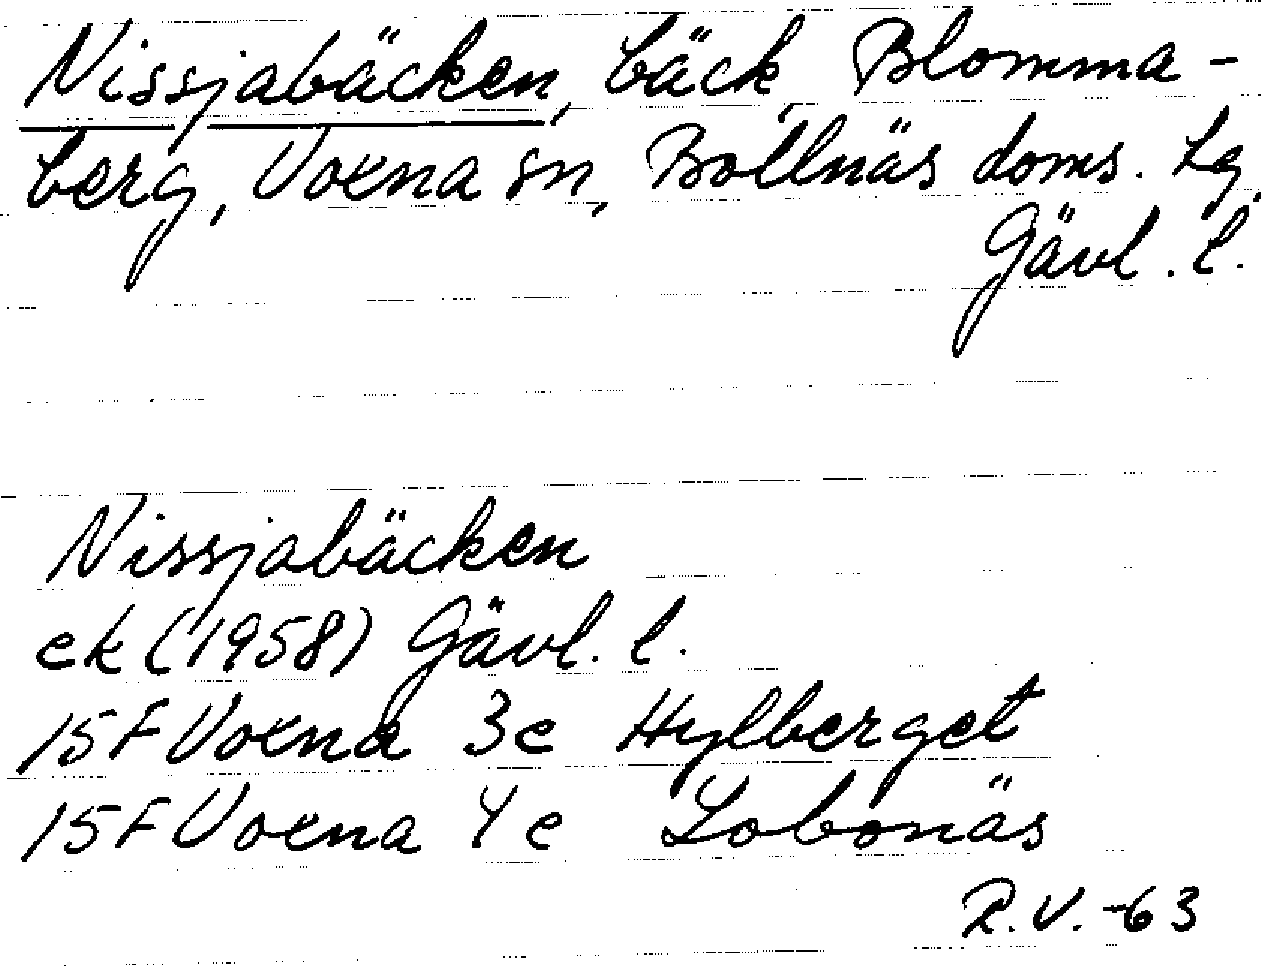 Nissjabäcken, bäck, Blomma-
berg, Voxna sn, Bollnäs doms. Lg,
Gävl. l.
Nissjabäcken
ek (1958) Gävl. l.
15F Voxna 3e Hylberget
15F Voxna 4e Lobonäs
R.V.-63